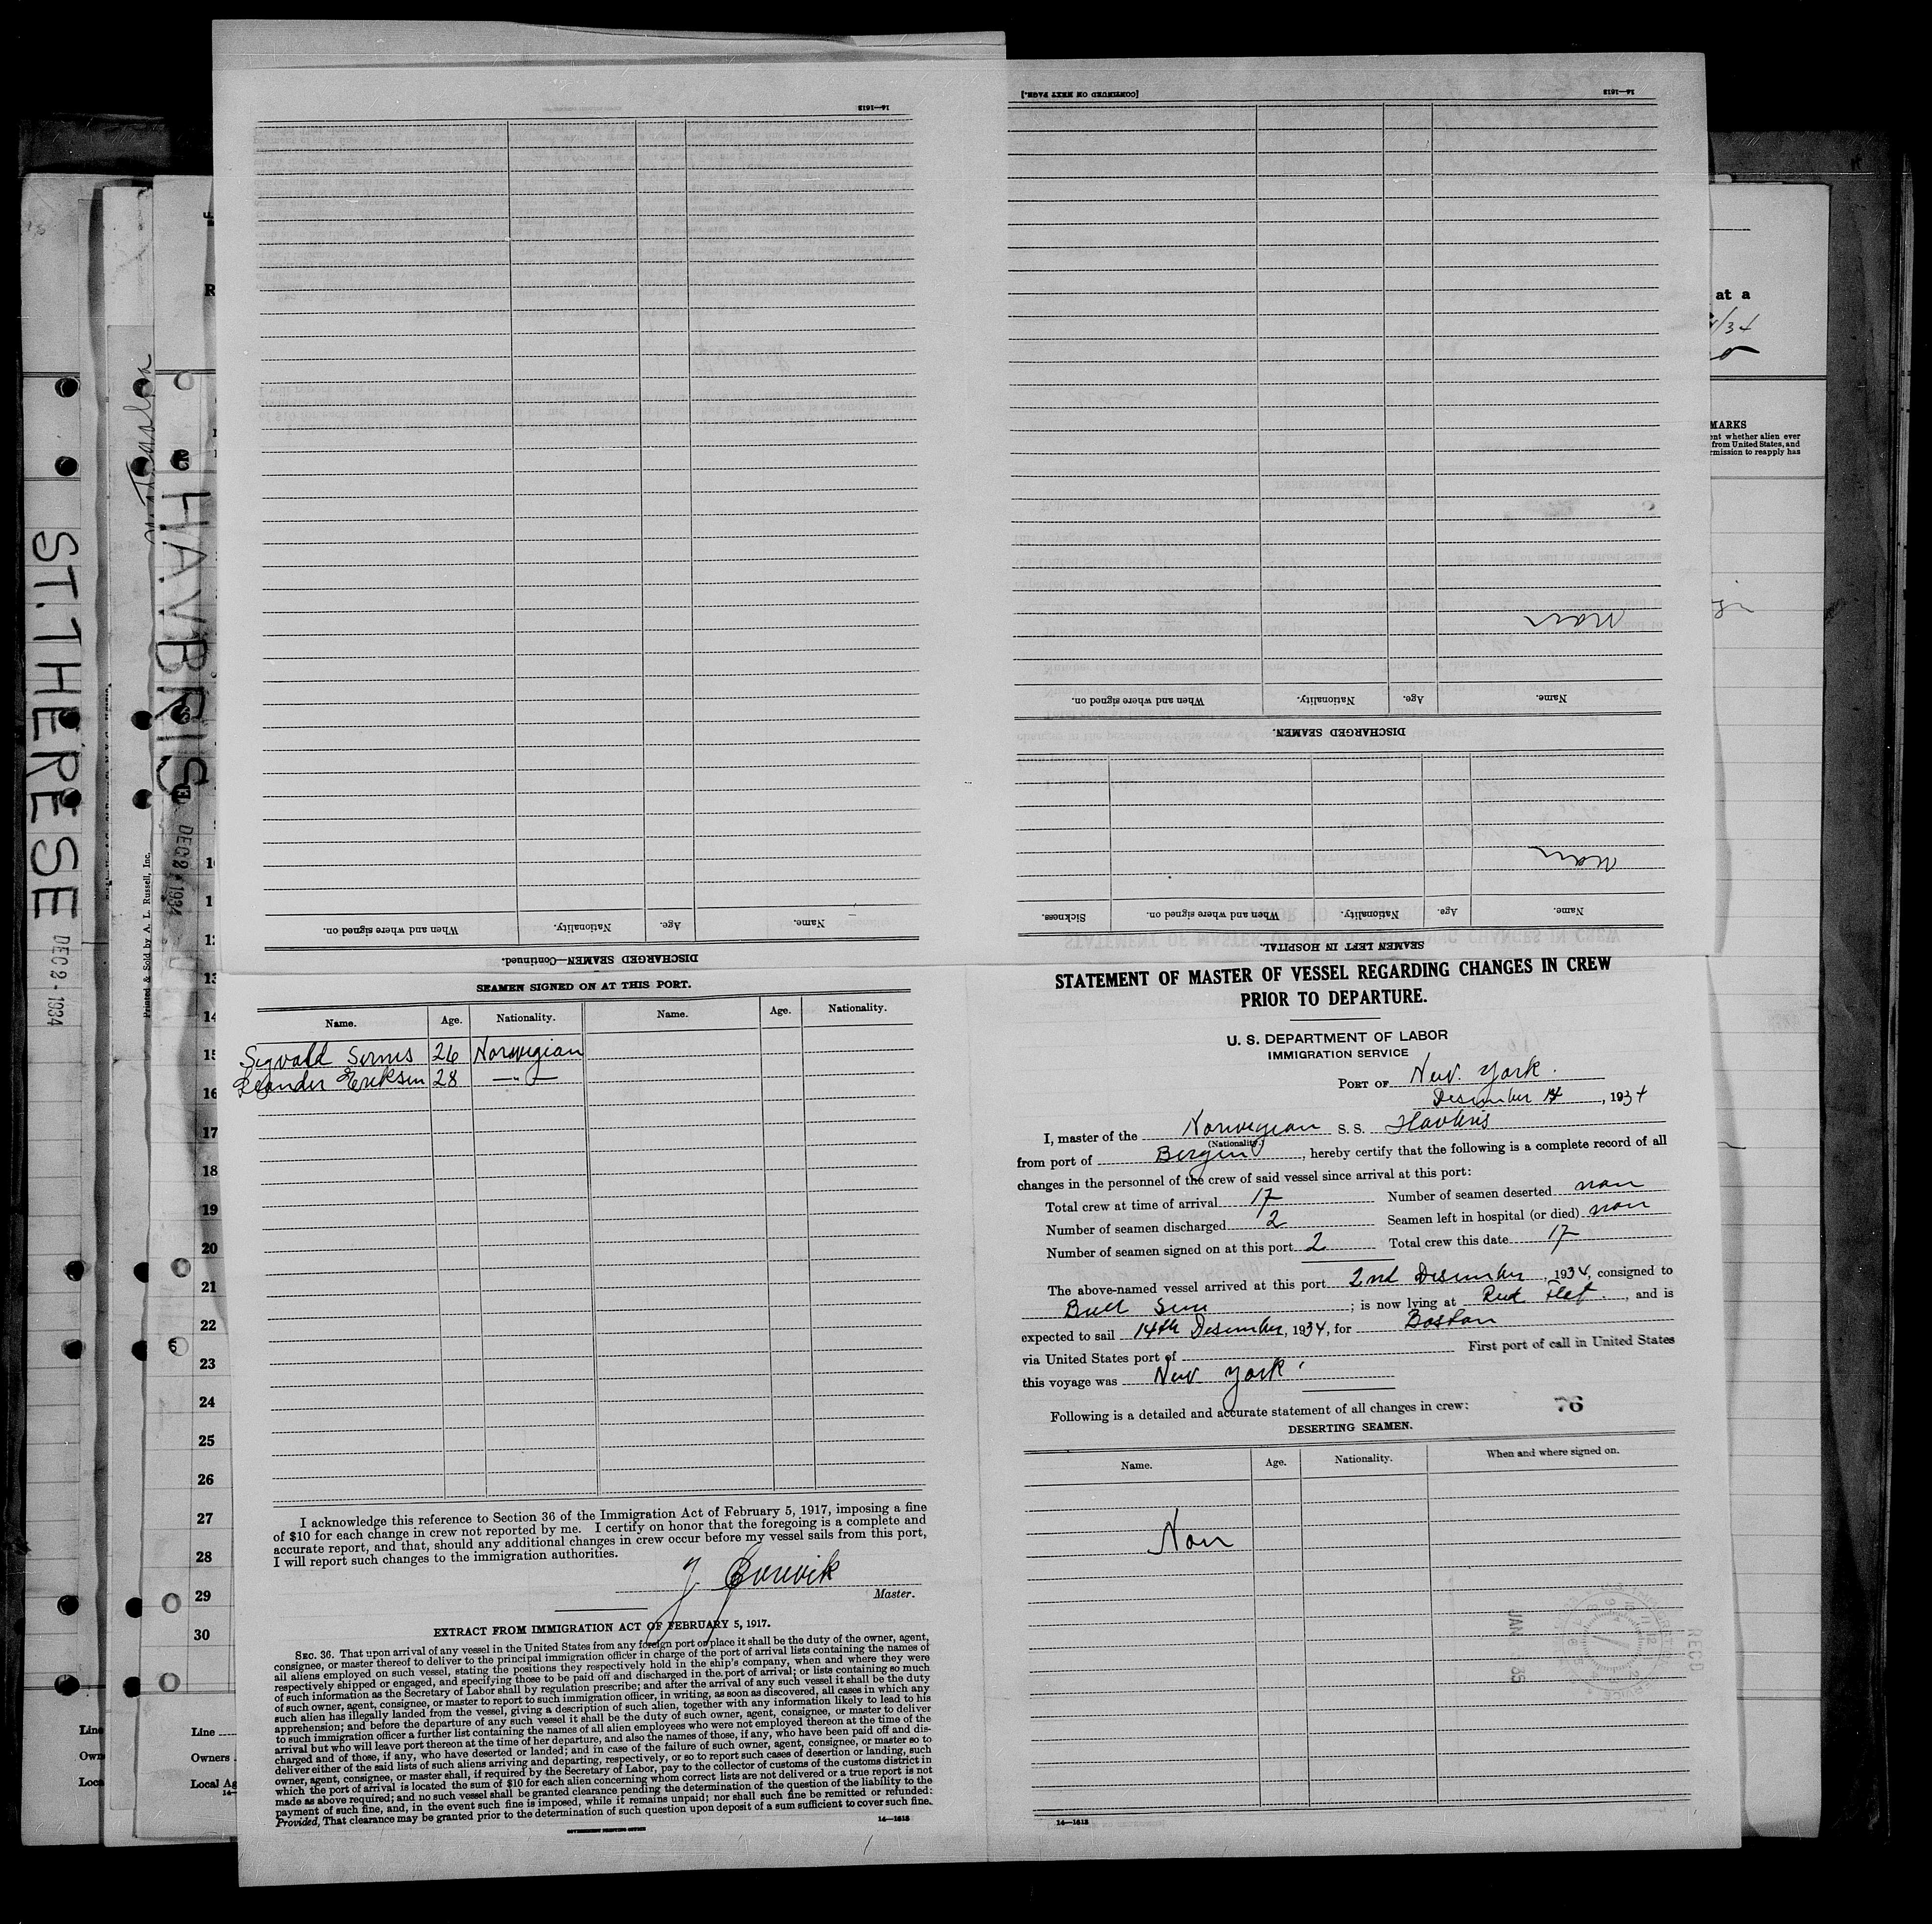 14—1613
DISCHARGED SEAMEN—Continued.
Name. Age. Nationality. When and where signed on.
[CONTINUED ON NEXT PAGE.]
14—1613
SEAMEN LEFT IN HOSPITAL.
Name. Age. Nationality. When and where signed on. Sickness.
Non
DISCHARGED SEAMEN.
Name. Age. Nationality. When and where signed on.
Non
SEAMEN SIGNED ON AT THIS PORT.
Name. Age. Nationality. Name. Age. Nationality.
Sigvald 26 Norwegian
Leander Eriksen 28 —"—
I acknowledge this reference to Section 36 of the Immigration Act of February 5, 1917, imposing a fine
of $10 for each change in crew not reported by me. I certify on honor that the foregoing is a complete and
accurate report, and that, should any additional changes in crew occur before my vessel sails from this port,
I will report such changes to the immigration authorities.
J.
Master.
EXTRACT FROM IMMIGRATION ACT OF FEBRUARY 5, 1917.
SEC. 36. That upon arrival of any vessel in the United States from any foreign port or place it shall be the duty of the owner, agent,
consignee, or master thereof to deliver to the principal immigration officer in charge of the port of arrival lists containing the names of
all aliens employed on such vessel, stating the positions they respectively hold in the ship's company, when and where they were
respectively shipped or engaged, and specifying those to be paid off and discharged in the port of arrival; or lists containing so much
of such information as the Secretary of Labor shall by regulation prescribe; and after the arrival of any such vessel it shall be the duty
of such owner, agent, consignee, or master to report to such immigration officer, in writing, as soon as discovered, all cases in which any
such alien has illegally landed from the vessel, giving a description of such alien, together with any information likely to lead to his
apprehension; and before the departure of any such vessel it shall be the duty of such owner, agent, consignee, or master to deliver
to such immigration officer a further list containing the names of all alien employees who were not employed thereon at the time of the
arrival but who will leave port thereon at the time of her departure, and also the names of those, if any, who have been paid off and dis-
charged and of those, if any, who have deserted or landed; and in case of the failure of such owner, agent, consignee, or master so to
deliver either of the said lists of such aliens arriving and departing, respectively, or so to report such cases of desertion or landing, such
owner, agent, consignee, or master shall, if required by the Secretary of Labor, pay to the collector of customs of the customs district in
which the port of arrival is located the sum of $10 for each alien concerning whom correct lists are not delivered or a true report is not
made as above required; and no such vessel shall be granted clearance pending the determination of the question of the liability to the
payment of such fine, and, in the event such fine is imposed, while it remains unpaid; nor shall such fine be remitted or refunded:
Provided, That clearance may be granted prior to the determination of such question upon deposit of a sum sufficient to cover such fine.
GOVERNMENT PRINTING OFFICE
14—1613
STATEMENT OF MASTER OF VESSEL REGARDING CHANGES IN CREW
PRIOR TO DEPARTURE.
U. S. DEPARTMENT OF LABOR
IMMIGRATION SERVICE
PORT OF New York.
Desember 14, 1934
I, master of the Norwegian S. S. Havbris
(Nationality.)
from port of Bergen, hereby certify that the following is a complete record of all
changes in the personnel of the crew of said vessel since arrival at this port:
Total crew at time of arrival 17 Number of seamen deserted non
Number of seamen discharged 2 Seamen left in hospital (or died) non
Number of seamen signed on at this port 2 Total crew this date 17
The above-named vessel arrived at this port 2nd Desember, 1934, consigned to
; is now lying at Red, and is
expected to sail 14th Desember, 1934, for Boston
via United States port of First port of call in United States
this voyage was New York.
Following is a detailed and accurate statement of all changes in crew:
76
DESERTING SEAMEN.
Name. Age. Nationality. When and where signed on.
Non
JAN 35
RECD
14—1613
ST. THERESE
DEC 2 - 1934
HAVBRIS
DEC 2 - 1934
Printed & Sold by A. L. Russell, Inc.
13
14
15
16
17
18
19
20
21
22
23
24
25
26
27
28
29
30
Line
Owners
Local Ag
at a
/34
MARKS
ent whether alien ever
from United States, and
rmission to reapply has